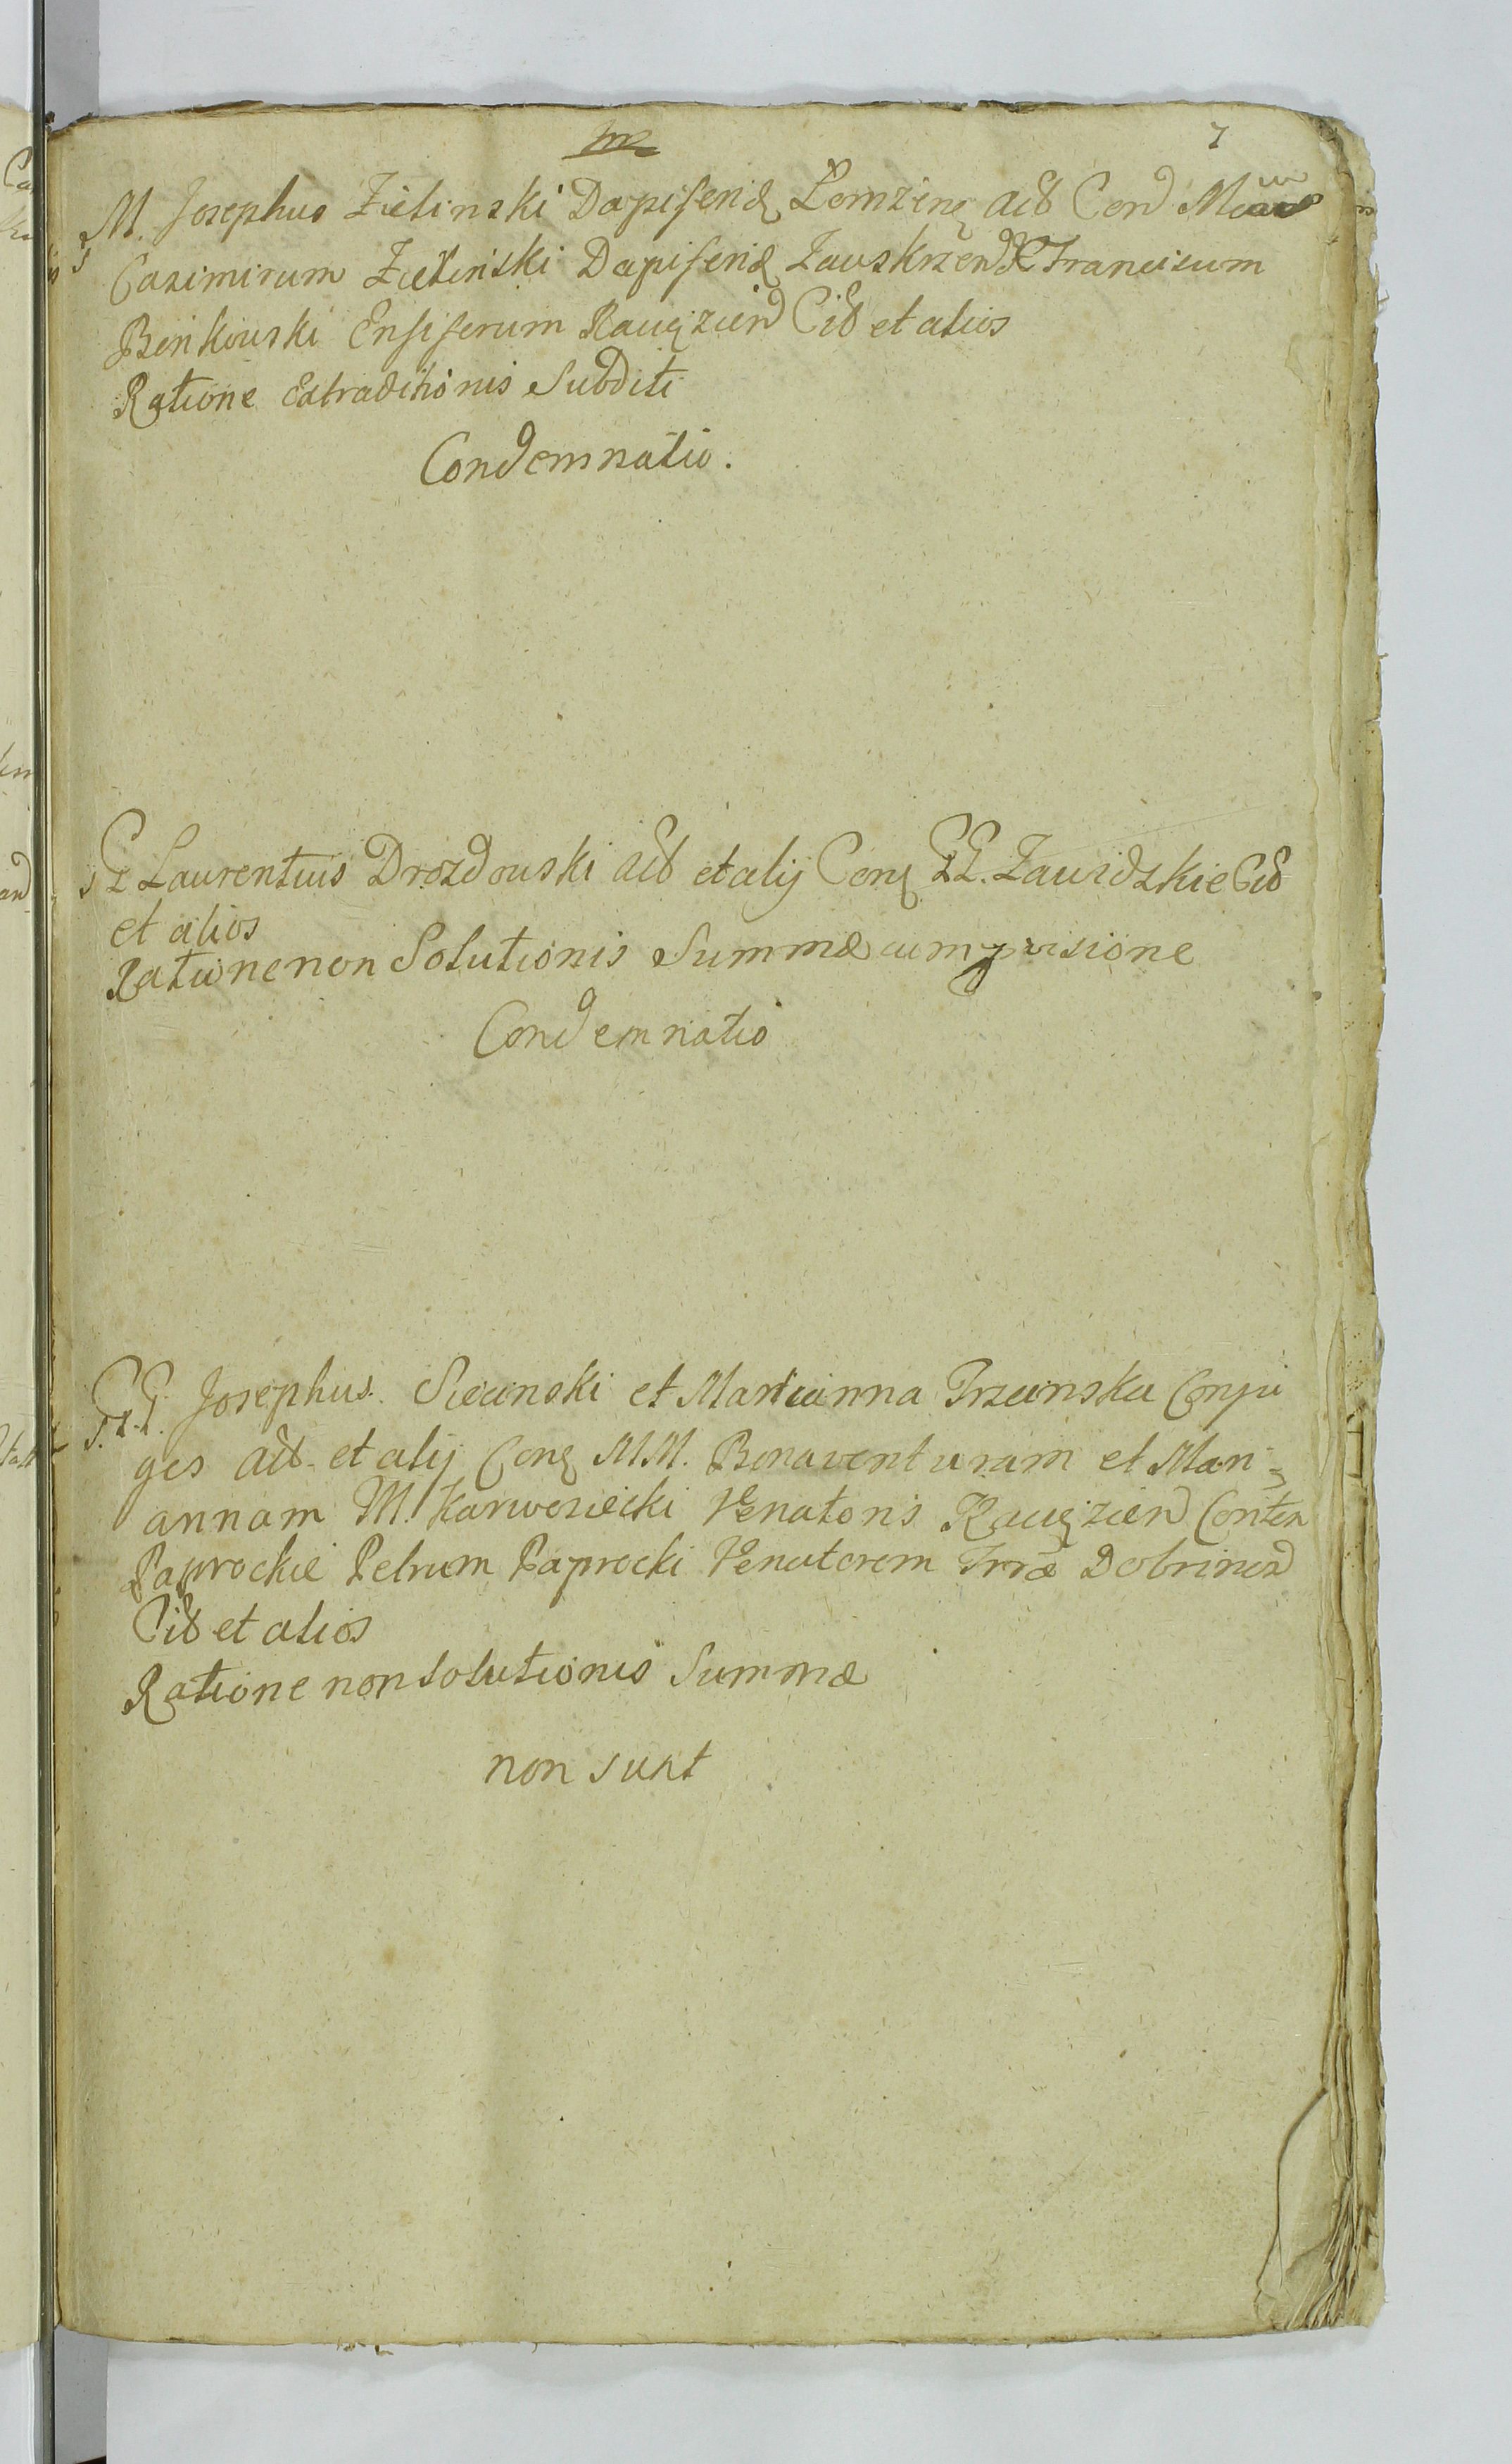 7
M. Josephus Zielinski Dapiferid Łomzenę Act Con Mum
Casimirum Zielinski Dapiferid Zawskrzen & Franciscum
Bęnkowski Ensiferum Raugzien Cit et alios
Ratione Extraditionis Subditi
Condemnatio.
G Laurentius Drozdowski Act et alij Conę GG. Zawidzkie Cit
et alios
Ratione non Solutionis Summæ cum provisione
Condemnatio
GG. Josephus Siecinski et Marianna Trzcinska Conju
ges Act et alij Conę MM. Bonaventuram et Mari=
annam M. Karwosiecki Venatoris Raugzien Conten
Paprockie Petrum Paprocki Venatorem Trræ Dobrinen
Cit et alios
Ratione non Solutionis Summæ
non sunt